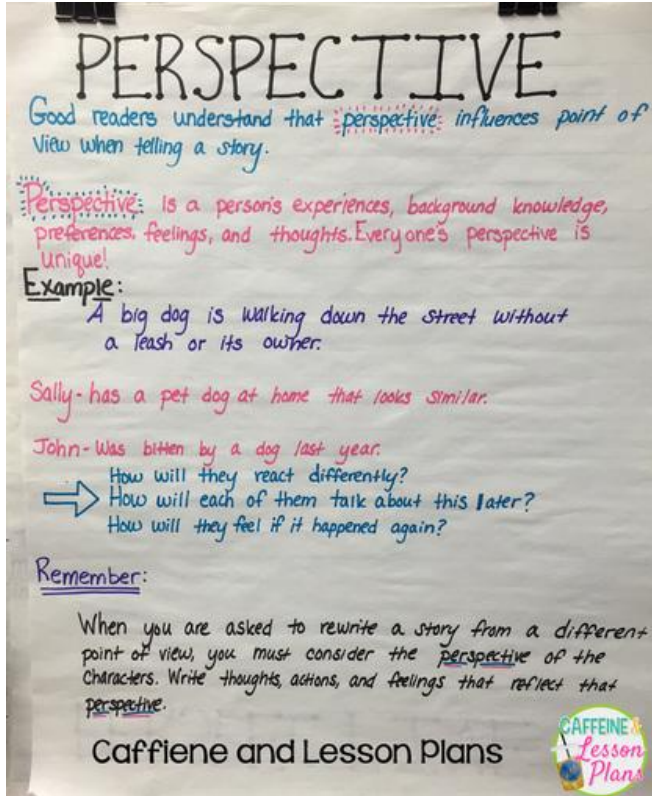 PERSPECTIVE
Good readers understand that perspective influences point of
view when telling a story.
Perspective: Is a person's experiences, background knowledge,
preferences, feelings, and thoughts. Everyone's perspective is
unique!
Example:
A big dog is walking down the street without
a leash or its owner.
Sally- has a pet dog at home that looks similar.
John- Was bitten by a dog last year.
How will they react differently?
How will each of them talk about this later?
How will they feel if it happened again?
Remember:
When you are asked to rewrite a story from a different
point of view, you must consider the perspective of the
characters. Write thoughts, actions, and feelings that reflect that
perspective.
Caffiene and Lesson Plans
CAFFEINE &
Lesson
Plans